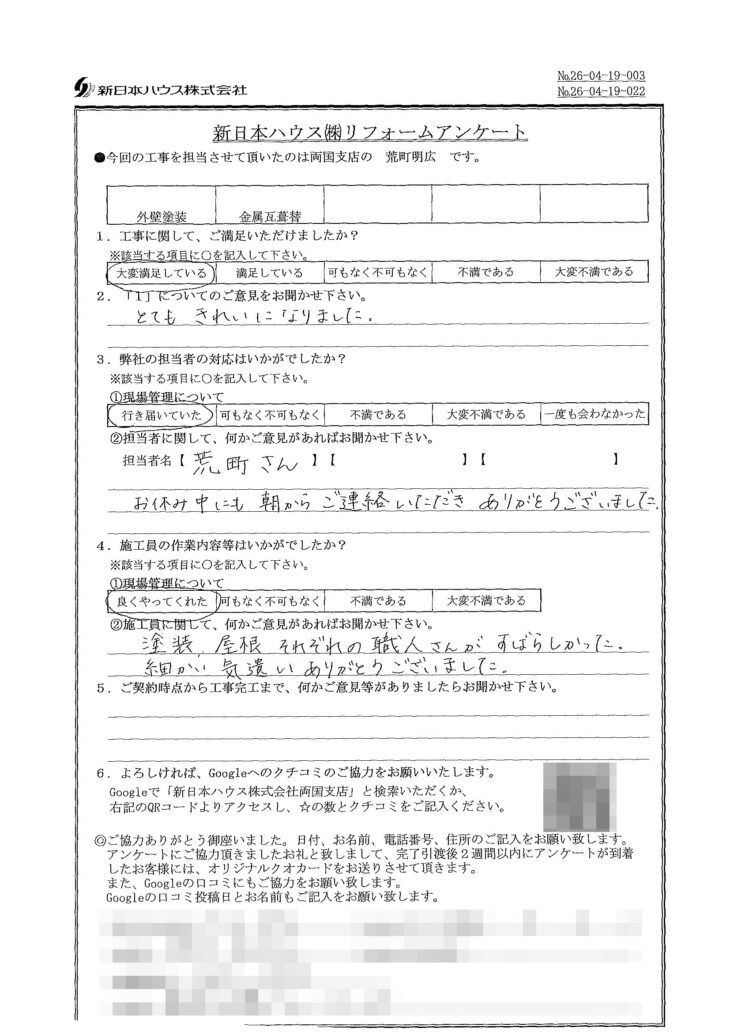 №26-04-19-003
№26-04-19-022
新日本ハウス株式会社
新日本ハウス㈱リフォームアンケート
●今回の工事を担当させて頂いたのは両国支店の 荒町明広 です。
外壁塗装 金属瓦葺替
1．工事に関して、ご満足いただけましたか？
※該当する項目に○を記入して下さい。
大変満足している 満足している 可もなく不可もなく 不満である 大変不満である
2．「1」についてのご意見をお聞かせ下さい。
とても きれいになりました.
3．弊社の担当者の対応はいかがでしたか？
※該当する項目に○を記入して下さい。
①現場管理について
行き届いていた 可もなく不可もなく 不満である 大変不満である 一度も会わなかった
②担当者に関して、何かご意見があればお聞かせ下さい。
担当者名【 荒町さん 】【 】【 】
お休み中にも 朝から ご連絡いただき ありがとうございました.
4．施工員の作業内容等はいかがでしたか？
※該当する項目に○を記入して下さい。
①現場管理について
良くやってくれた 可もなく不可もなく 不満である 大変不満である
②施工員に関して、何かご意見があればお聞かせ下さい。
塗装, 屋根 それぞれの 職人さんが すばらしかった.
細かい 気遣い ありがとうございました.
5．ご契約時点から工事完工まで、何かご意見等がありましたらお聞かせ下さい。
6．よろしければ、Googleへのクチコミのご協力をお願いいたします。
Googleで「新日本ハウス株式会社両国支店」と検索いただくか、
右記のQRコードよりアクセスし、☆の数とクチコミをご記入ください。
◎ご協力ありがとう御座いました。日付、お名前、電話番号、住所のご記入をお願い致します。
アンケートにご協力頂きましたお礼と致しまして、完了引渡後２週間以内にアンケートが到着
したお客様には、オリジナルクオカードをお送りさせて頂きます。
また、Googleの口コミにもご協力をお願い致します。
Googleの口コミ投稿日とお名前もご記入をお願い致します。